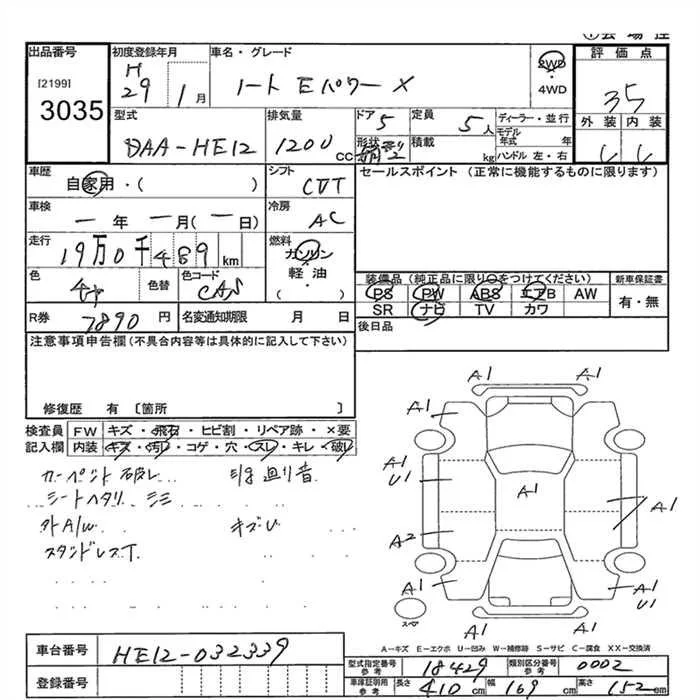 出品番号 初度登録年月 車名・グレード 評価点
[2199]
3035
H
29 1月
ノート Eパワー X
2WD
・
4WD
35
外装 内装
型式 排気量 ドア 定員 ディーラー・並行
DAA-HE12 1200 CC 5 5人
形状 積載 kg
モデル年式 年
ハンドル 左・右
車歴 シフト セールスポイント (正常に機能するものに限ります)
自家用・( ) CVT
車検 冷房
ー年 ー月(ー日) AC
走行 燃料
19万0千489km ガソリン
軽油
・( )
色 色替 色コード
CAS
装備品(純正品に限り○をつけてください) 新車保証書
PS PW ABS エアB AW 有・無
SR ナビ TV カワ
R券 7890円 名変通知期限 月 日
後日品
注意事項申告欄(不具合内容等は具体的に記入して下さい)
修復歴 有 〔箇所 〕
検査員 FW キズ・飛石・ヒビ割・リペア跡・×要
記入欄 内装 キズ・汚レ・コゲ・穴・スレ・キレ・破レ
シートヘタリ シミ
外A/W キズU
A1 A1
A1 A1
A1
U1
A1
A1
A2
A1 A1
U1
スペ
A1 A1
A-キズ E-エクボ U-凹み W-補修跡 S-サビ C-腐食 XX-交換済
車台番号 HE12-032339
型式指定番号 参考 18429 類別区分番号 参考 0002
登録番号
車庫証明用 参考 長さ 410cm 幅 169cm 高さ 152cm